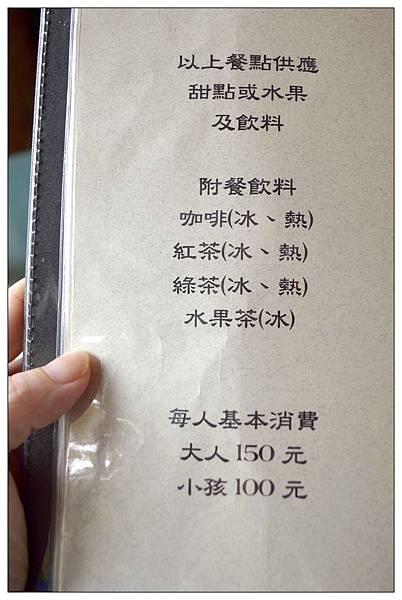 以上餐點供應
甜點或水果
及飲料
附餐飲料
咖啡(冰、熱)
紅茶(冰、熱)
綠茶(冰、熱)
水果茶(冰)
每人基本消費
大人 150 元
小孩 100 元